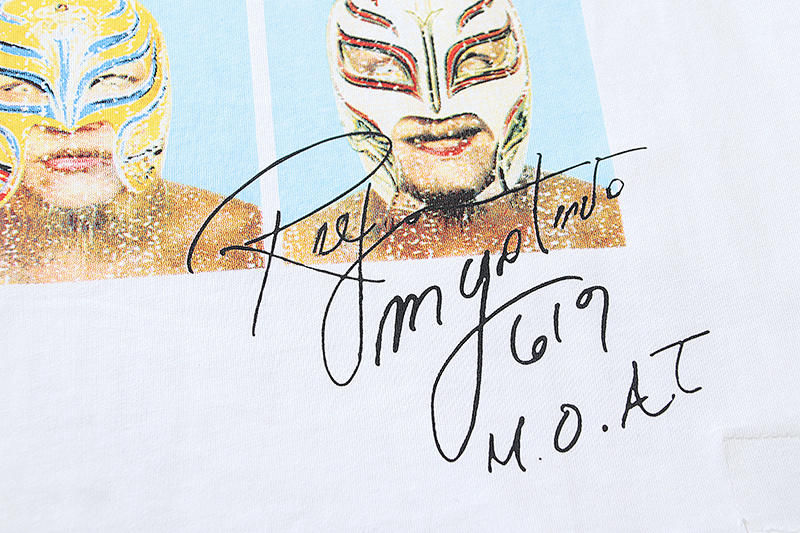 Rey Mysterio
619
M.O.A.T